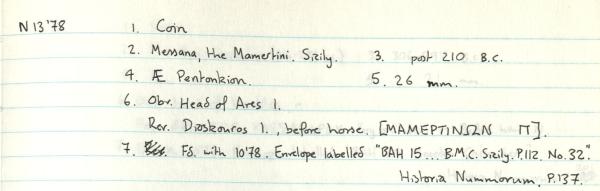 N 13'78 1. Coin
2. Messana, the Mamertini. Sizily. 3. post 210 B.C.
4. Æ Pentonkion. 5. 26 mm.
6. Obv. Head of Ares l.
Rev. Dioskouros l., before horse. [ΜΑΜΕΡΤΙΝΩΝ Π].
7. Fd. with 10'78. Envelope labelled "BAH 15... B.M.C. Sizily. P.112. No. 32."
Historia Nummorum. P.137.